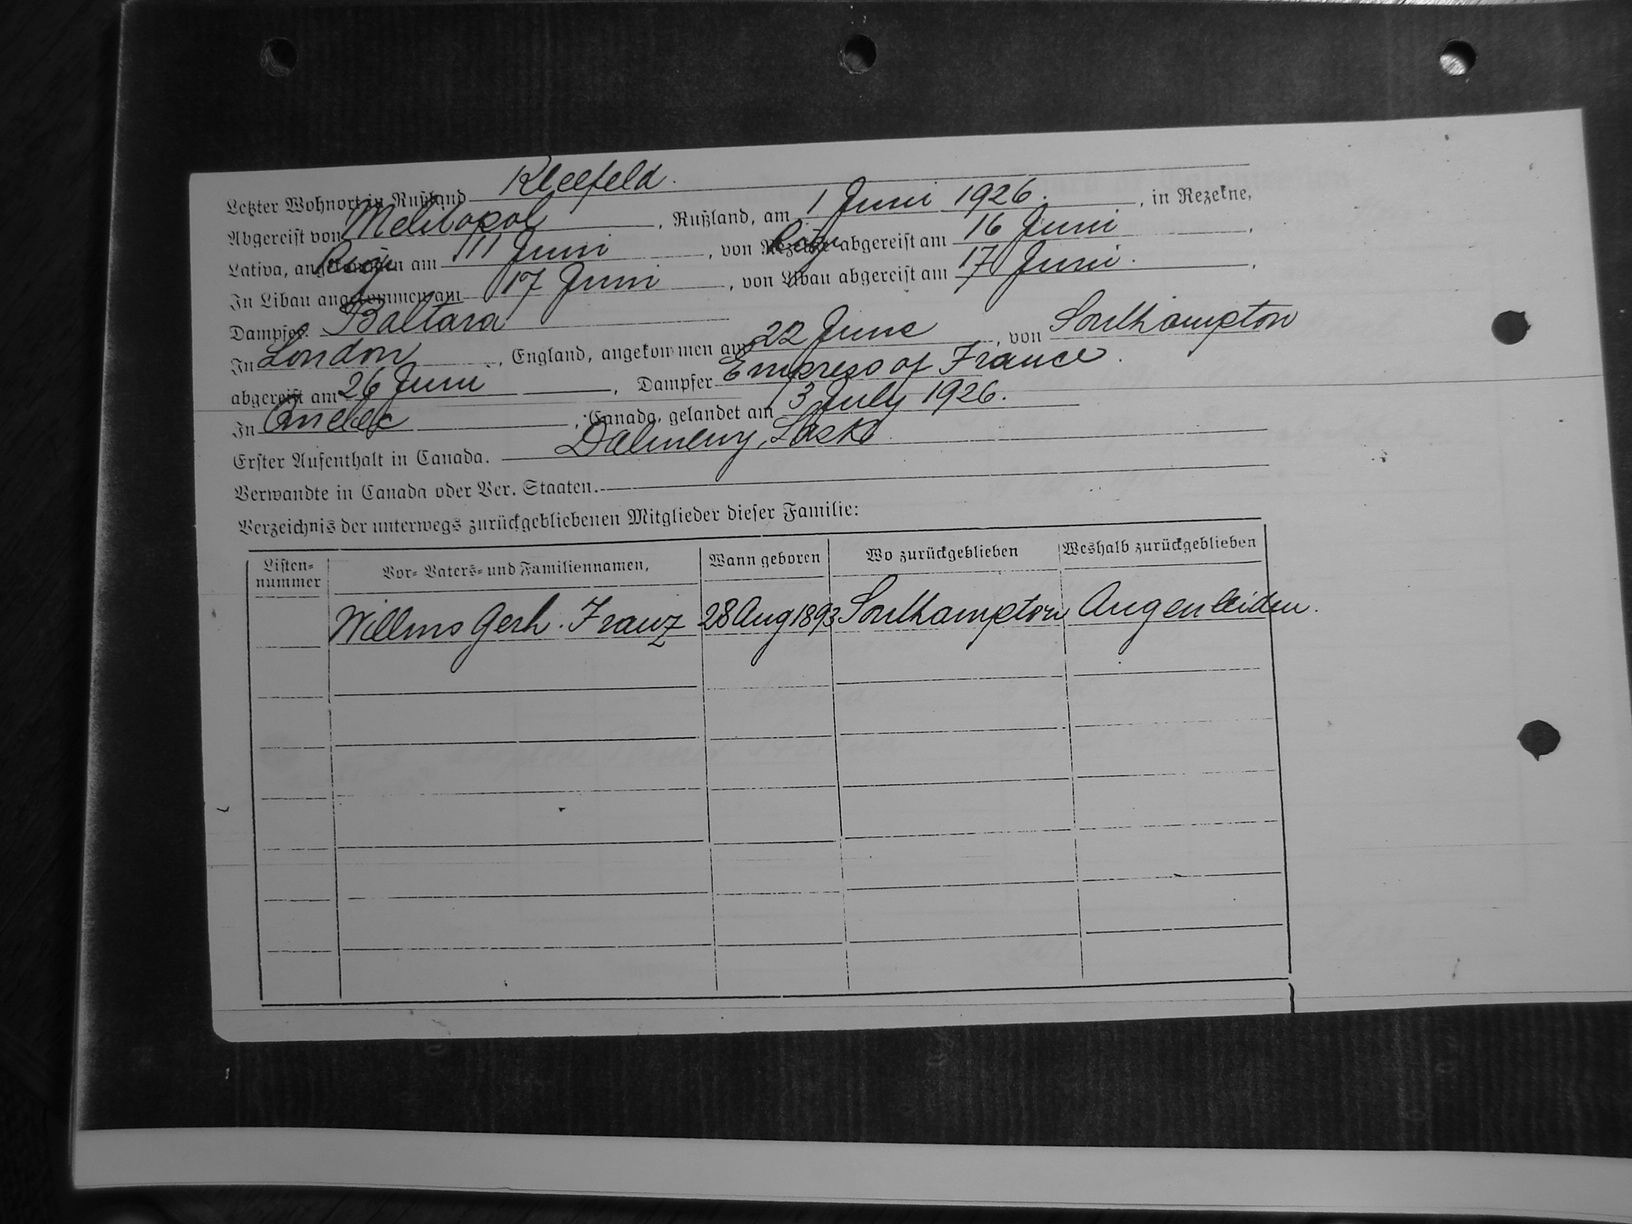 Letzter Wohnort in Rußland Kleefeld.
Abgereist von Melitopol, Rußland, am 1 Juni 1926., in Rezekne,
Lativa, angekommen am Riga 11 Juni, von Rezekne Riga abgereist am 16 Juni,
In Libau angekommen am 17 Juni, von Libau abgereist am 17 Juni.,
Dampfer Baltara
In London, England, angekommen am 22 June, von Southampton
abgereist am 26 Juni, Dampfer Empress of France.
In Quebec, Canada, gelandet am 3 July 1926.
Erster Aufenthalt in Canada. Dalmeny, Sask.
Verwandte in Canada oder Ver. Staaten.
Verzeichnis der unterwegs zurückgebliebenen Mitglieder dieser Familie:
Listen-nummer Vor- Vaters- und Familiennamen, Wann geboren Wo zurückgeblieben Weshalb zurückgeblieben
Willms Gerh. Franz 28 Aug 1893 Southampton Augenleiden.